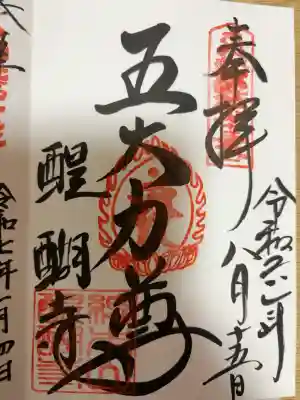 奉拝
令和六年
八月十五日
五大力尊
醍醐寺
令和七年一月四日